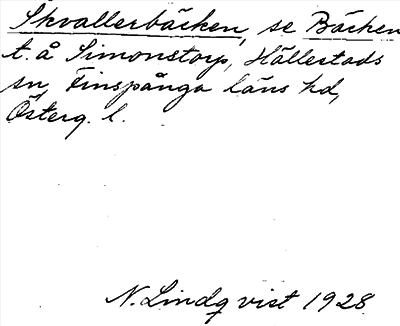 Skvallerbäcken, se Bäcken
t. å Simonstorp, Hällestads
sn, Finspånga läns hd,
Österg. l.
N. Lindqvist 1928